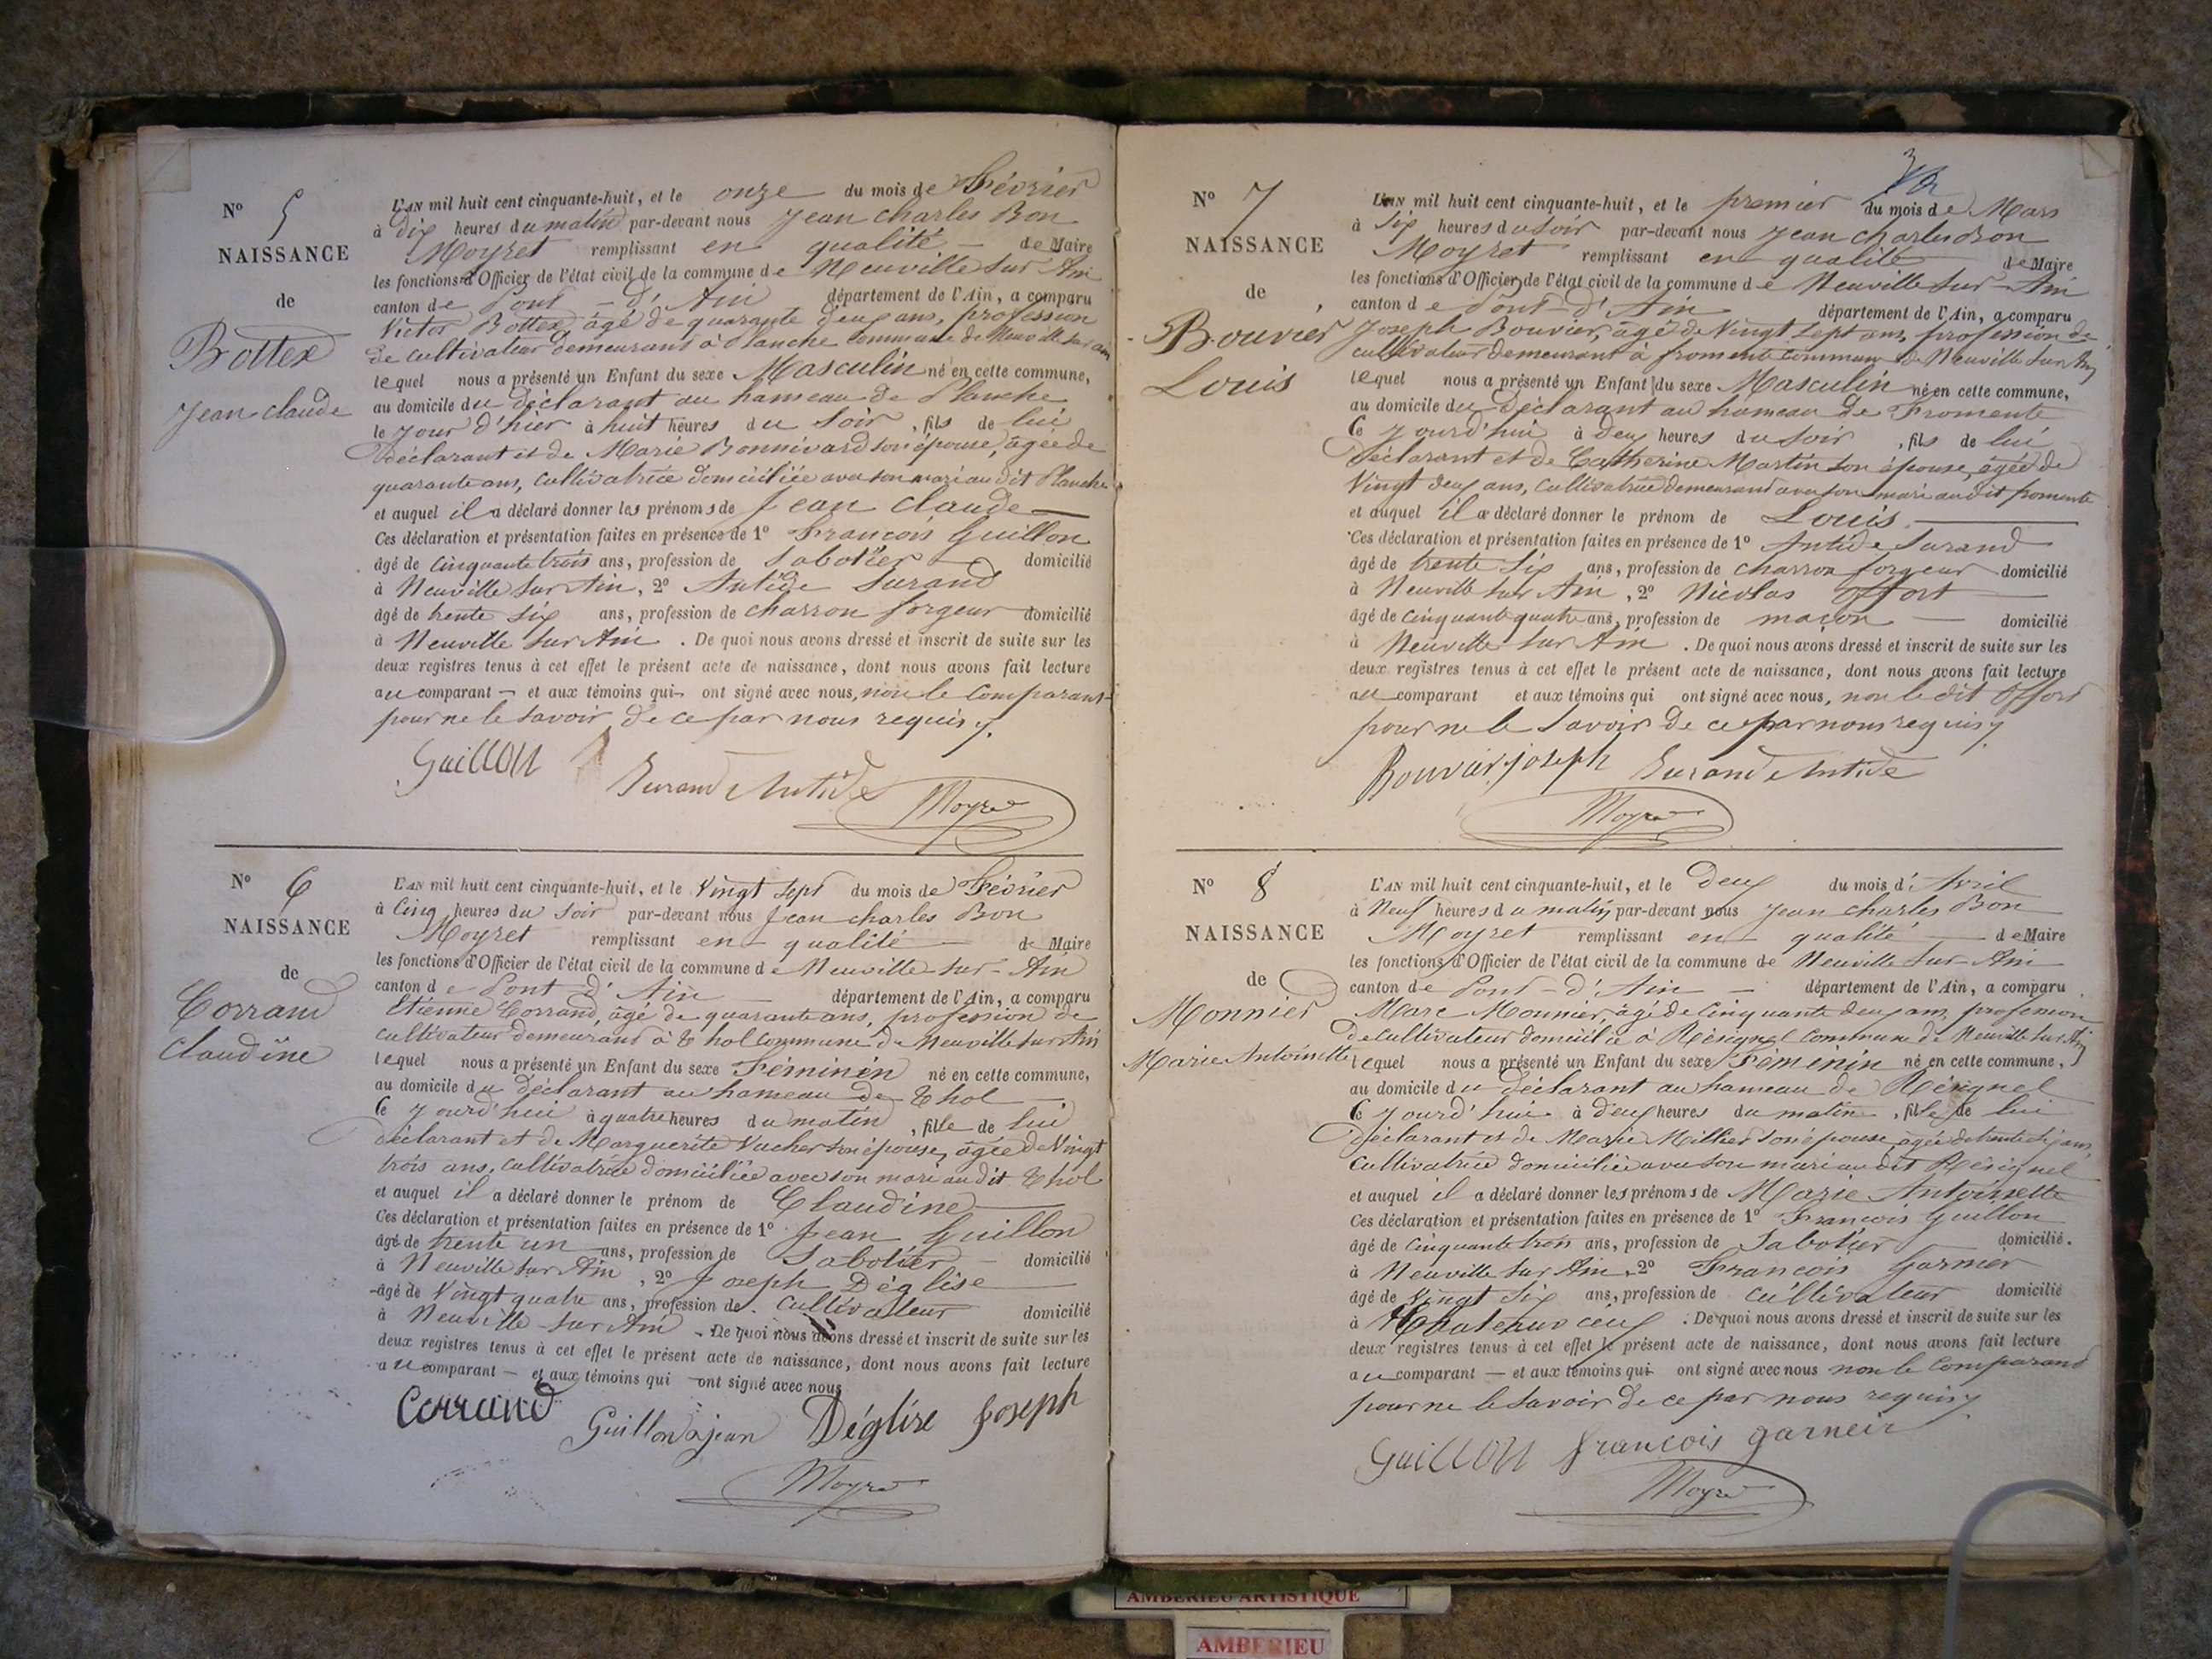 N° 5
NAISSANCE
de
Bottex
Jean Claude
L'AN mil huit cent cinquante-huit, et le onze du mois de Février
à dix heures du matin par-devant nous Jean Charles Bon
Moyret remplissant en qualité de Maire
les fonctions d'Officier de l'état civil de la commune de Neuville sur Ain
canton de Pont - d' Ain département de l'Ain, a comparu
Victor Bottex, âgé de quarante deux ans, profession
de cultivateur demeurant à Planche commune de Neuville sur ain
lequel nous a présenté un Enfant du sexe Masculin né en cette commune,
au domicile du déclarant au hameau de Planche
le jour d'hier à huit heures du soir, fils de lui
déclarant et de Marie Bonnivard son épouse, âgée de
quarante ans, cultivatrice domiciliée avec son mari au dit Planche
et auquel il a déclaré donner les prénoms de Jean Claude
Ces déclaration et présentation faites en présence de 1° François Guillon
âgé de cinquante trois ans, profession de Sabotier domicilié
à Neuville sur Ain, 2° Antide Surand
âgé de trente six ans, profession de charron forgeur domicilié
à Neuville sur Ain. De quoi nous avons dressé et inscrit de suite sur les
deux registres tenus à cet effet le présent acte de naissance, dont nous avons fait lecture
au comparant - et aux témoins qui ont signé avec nous, non le comparant
pour ne le savoir de ce par nous requis.
Guillon
Surand Antide
Moyret
N° 6
NAISSANCE
de
Corrand
Claudine
L'AN mil huit cent cinquante-huit, et le Vingt sept du mois de Février
à Cinq heures du Soir par-devant nous Jean Charles Bon
Moyret remplissant en qualité de Maire
les fonctions d'Officier de l'état civil de la commune de Neuville sur - Ain
canton de Pont d' Ain département de l'Ain, a comparu
Etienne Corrand, âgé de quarante ans, profession de
cultivateur demeurant à Thol commune de Neuville sur Ain
lequel nous a présenté un Enfant du sexe Féminin né en cette commune,
au domicile du déclarant au hameau de Thol
Ce jourd'hui à quatre heures du matin, fille de lui
déclarant et de Marguerite Vucher son épouse, âgée de Vingt
trois ans, cultivatrice domiciliée avec son mari au dit Thol
et auquel il a déclaré donner le prénom de Claudine
Ces déclaration et présentation faites en présence de 1° Jean Guillon
âgé de trente un ans, profession de Sabotier domicilié
à Neuville sur Ain, 2° Joseph Déglise
âgé de Vingt quatre ans, profession de cultivateur domicilié
à Neuville - sur Ain. De quoi nous avons dressé et inscrit de suite sur les
deux registres tenus à cet effet le présent acte de naissance, dont nous avons fait lecture
au comparant - et aux témoins qui ont signé avec nous
Corrand
Guillon jean
Déglise Joseph
Moyret
N° 7
NAISSANCE
de
Bouvier
Louis
L'AN mil huit cent cinquante-huit, et le premier du mois de Mars
à Six heures du soir par-devant nous Jean Charles Bon
Moyret remplissant en qualité de Maire
les fonctions d'Officier de l'état civil de la commune de Neuville sur - Ain
canton de Pont - d' Ain département de l'Ain, a comparu
Joseph Bouvier, âgé de Vingt sept ans, profession de
cultivateur demeurant à fromente commune de Neuville sur Ain
lequel nous a présenté un Enfant du sexe Masculin né en cette commune,
au domicile du déclarant au hameau de Fromente
Ce jourd'hui à deux heures du soir, fils de lui
déclarant et de Catherine Martin son épouse, âgée de
Vingt deux ans, cultivatrice demeurant avec son mari au dit fromente
et auquel il a déclaré donner le prénom de Louis
Ces déclaration et présentation faites en présence de 1° Antide Surand
âgé de trente six ans, profession de charron forgeur domicilié
à Neuville sur Ain, 2° Nicolas Offort
âgé de cinquante quatre ans, profession de maçon domicilié
à Neuville sur Ain. De quoi nous avons dressé et inscrit de suite sur les
deux registres tenus à cet effet le présent acte de naissance, dont nous avons fait lecture
au comparant et aux témoins qui ont signé avec nous, non le dit Offort
pour ne le savoir de ce par nous requis
Bouvier joseph
Surand Antide
Moyret
N° 8
NAISSANCE
de
Monnier
Marie Antoinette
L'AN mil huit cent cinquante-huit, et le deux du mois d'Avril
à Neuf heures du matin par-devant nous Jean Charles Bon
Moyret remplissant en qualité de Maire
les fonctions d'Officier de l'état civil de la commune de Neuville sur - Ain
canton de Pont - d' Ain département de l'Ain, a comparu
Marc Monnier, âgé de Cinquante deux ans, profession
de cultivateur domicilié à Résignel commune de Neuville sur Ain
lequel nous a présenté un Enfant du sexe Féminin né en cette commune,
au domicile du déclarant au hameau de Résignel
Ce jourd'hui à deux heures du matin, fille de lui
déclarant et de Marie Millier son épouse, âgée de trente six ans,
Cultivatrice domiciliée avec son mari au dit Résignel
et auquel il a déclaré donner les prénoms de Marie Antoinette
Ces déclaration et présentation faites en présence de 1° François Guillon
âgé de cinquante trois ans, profession de Sabotier domicilié.
à Neuville sur Ain, 2° François Garnier
âgé de Vingt Six ans, profession de cultivateur domicilié
à. De quoi nous avons dressé et inscrit de suite sur les
deux registres tenus à cet effet le présent acte de naissance, dont nous avons fait lecture
au comparant - et aux témoins qui ont signé avec nous non le Comparant
pour ne le savoir de ce par nous requis
Guillon
francois garneir
Moyret
AMBERIEU ARTISTIQUE
AMBERIEU